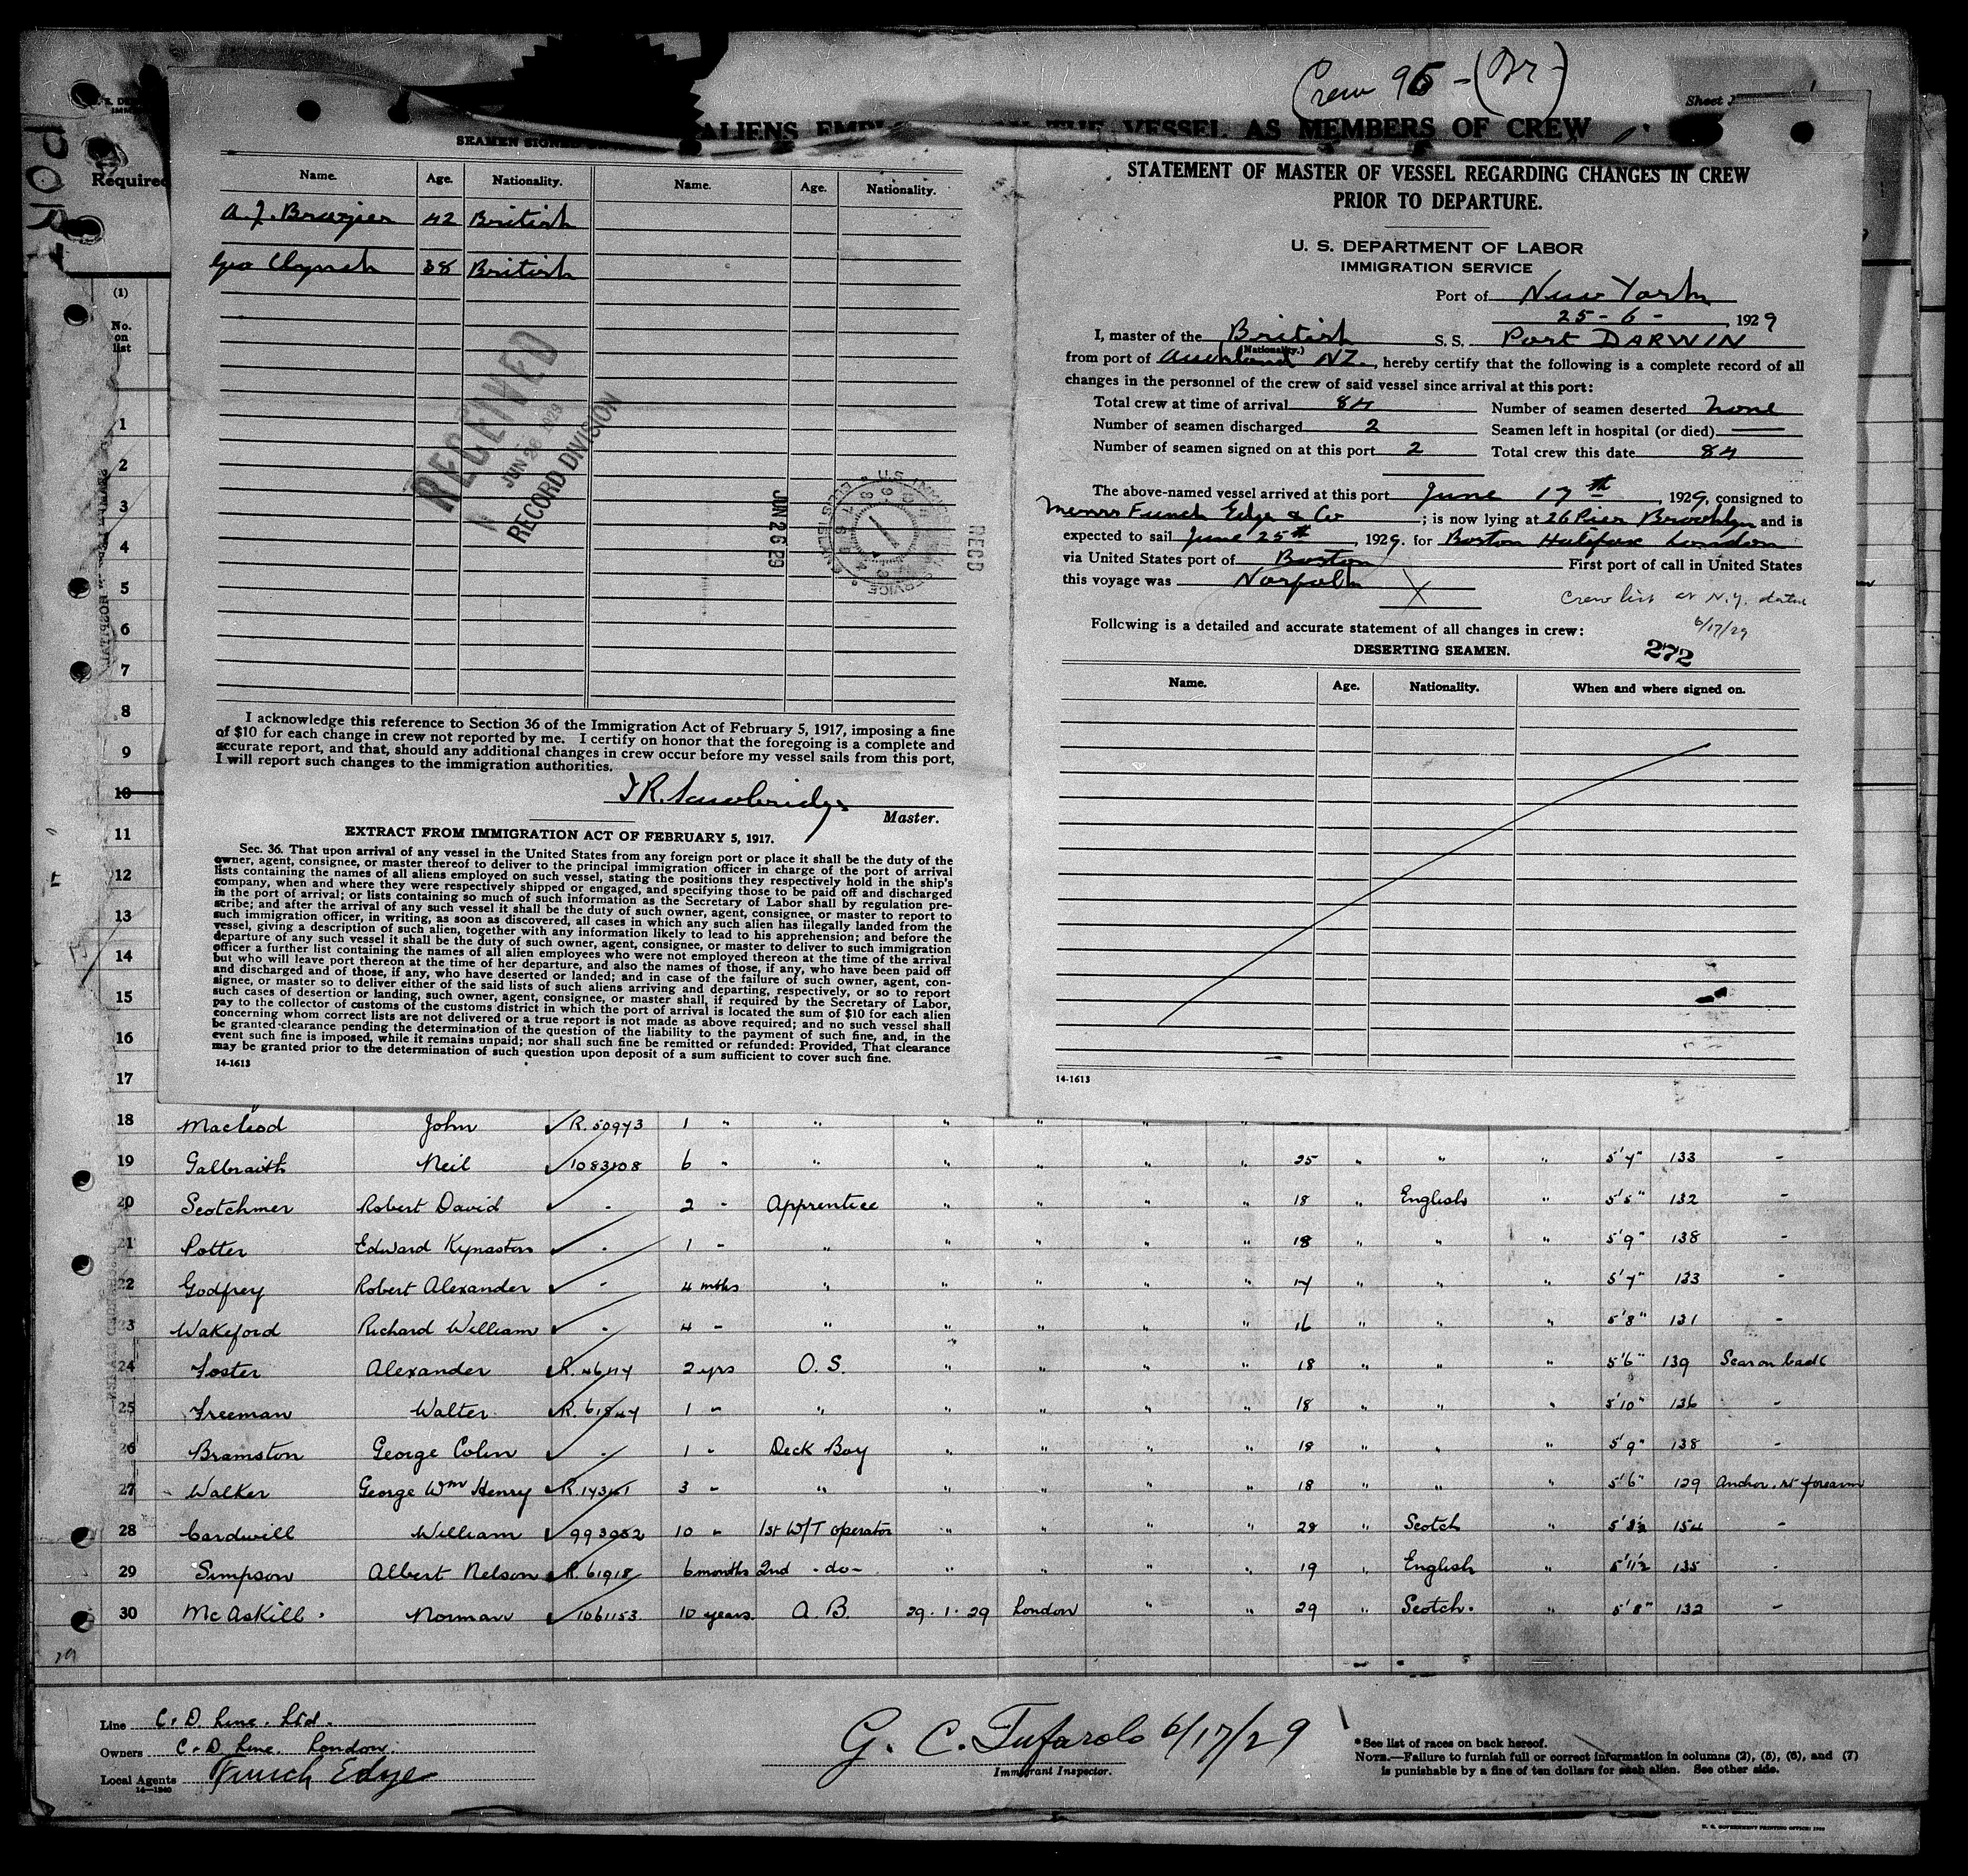 Crew 95 -
Sheet
ALIENS EMPLO THE VESSEL AS MEMBERS OF CREW
Required
PORT
SEAMEN SIGNED
Name. Age. Nationality. Name. Age. Nationality.
A. J. Brazier 42 British
Geo Clynch 38 British
RECEIVED
JUN 26 1929
RECORD DIVISION
JUN 26 29
REC'D
I acknowledge this reference to Section 36 of the Immigration Act of February 5, 1917, imposing a fine
of $10 for each change in crew not reported by me. I certify on honor that the foregoing is a complete and
accurate report, and that, should any additional changes in crew occur before my vessel sails from this port,
I will report such changes to the immigration authorities.
Master.
EXTRACT FROM IMMIGRATION ACT OF FEBRUARY 5, 1917.
Sec. 36. That upon arrival of any vessel in the United States from any foreign port or place it shall be the duty of the
owner, agent, consignee, or master thereof to deliver to the principal immigration officer in charge of the port of arrival
lists containing the names of all aliens employed on such vessel, stating the positions they respectively hold in the ship's
company, when and where they were respectively shipped or engaged, and specifying those to be paid off and discharged
in the port of arrival; or lists containing so much of such information as the Secretary of Labor shall by regulation pre-
scribe; and after the arrival of any such vessel it shall be the duty of such owner, agent, consignee, or master to report to
such immigration officer, in writing, as soon as discovered, all cases in which any such alien has illegally landed from the
vessel, giving a description of such alien, together with any information likely to lead to his apprehension; and before the
departure of any such vessel it shall be the duty of such owner, agent, consignee, or master to deliver to such immigration
officer a further list containing the names of all alien employees who were not employed thereon at the time of the arrival
but who will leave port thereon at the time of her departure, and also the names of those, if any, who have been paid off
and discharged and of those, if any, who have deserted or landed; and in case of the failure of such owner, agent, con-
signee, or master so to deliver either of the said lists of such aliens arriving and departing, respectively, or so to report
such cases of desertion or landing, such owner, agent, consignee, or master shall, if required by the Secretary of Labor,
pay to the collector of customs of the customs district in which the port of arrival is located the sum of $10 for each alien
concerning whom correct lists are not delivered or a true report is not made as above required; and no such vessel shall
be granted clearance pending the determination of the question of the liability to the payment of such fine, and, in the
event such fine is imposed, while it remains unpaid; nor shall such fine be remitted or refunded: Provided, That clearance
may be granted prior to the determination of such question upon deposit of a sum sufficient to cover such fine.
14-1613
STATEMENT OF MASTER OF VESSEL REGARDING CHANGES IN CREW
PRIOR TO DEPARTURE.
U. S. DEPARTMENT OF LABOR
IMMIGRATION SERVICE
Port of New York
25 - 6 - , 1929
I, master of the British S. S. Port DARWIN
(Nationality.)
from port of Auckland NZ., hereby certify that the following is a complete record of all
changes in the personnel of the crew of said vessel since arrival at this port:
Total crew at time of arrival 84 Number of seamen deserted None
Number of seamen discharged 2 Seamen left in hospital (or died)
Number of seamen signed on at this port 2 Total crew this date 84
The above-named vessel arrived at this port June 17th, 1929, consigned to
Messrs Funch Edye & Co; is now lying at 26 Pier Brooklyn and is
expected to sail June 25th, 1929. for Boston Halifax London
via United States port of Boston First port of call in United States
this voyage was Norfolk X
Crew list at N.Y. dated
6/17/29
Following is a detailed and accurate statement of all changes in crew:
272
DESERTING SEAMEN.
Name. Age. Nationality. When and where signed on.
14-1613
(1)
No.
on
list
1
2
3
4
5
6
7
8
9
10
11
12
13
14
15
16
17
18 Macleod John R. 50973 1 " " " " " "
19 Galbraith Neil 1083108 6 " " " " " " 25 " " " 5'7" 133 -
20 Scotchmer Robert David - 2 " Apprentice " " " " 18 " English " 5'5" 132 -
21 Potter Edward Kynaston - 1 - " " " " " 18 " " " 5'9" 138 -
22 Godfrey Robert Alexander - 4 mths " " " " " 17 " " " 5'7" 133 -
23 Wakeford Richard William - 4 - " " " " " 16 " " " 5'8" 131 -
24 Foster Alexander 2 yrs O. S. " " " " 18 " " " 5'6" 139 Scar on back
25 Freeman Walter 1 - " " " " " 18 " " " 5'10" 136 -
26 Bramston George Colin - 1 - Deck Boy " " " " 18 " " " 5'9" 138 -
27 Walker George Wm Henry 3 - " " " " " 18 " " " 5'6" 129 Anchor. rt forearm
28 Cardwill William 993952 10 " 1st W/T operator " " " " 28 " Scotch " 154 -
29 Simpson Albert Nelson R. 61918 6 months 2nd -do- " " " " 19 " English " 5'11½ 135 -
30 McAskill Norman 1061153 10 years A. B. 29.1.29 London " " 29 " Scotch. " 5'8" 132 -
Line C. & D. Line. Ltd.
Owners C. & D. Line. London.
Local Agents Funch Edye
14-1240
G. C. Tufarolo 6/17/29
Immigrant Inspector.
*See list of races on back hereof.
NOTE.—Failure to furnish full or correct information in columns (2), (5), (6), and (7)
is punishable by a fine of ten dollars for each alien. See other side.